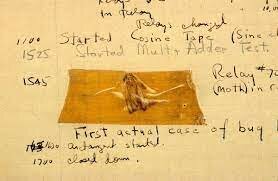 In Relay
Relays changed
1100 Started Cosine Tape (Sine c
1525 Started Mult + Adder Test.
1545 Relay #70
(moth) in r
First actual case of bug b
antangent started.
1700 closed down.